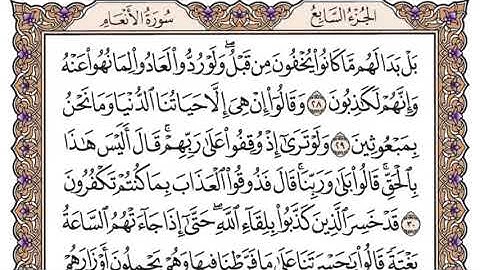 الجزء السابع
سورة الأنعام
بَلْ بَدَا لَهُم مَّا كَانُوا۟ يُخْفُونَ مِن قَبْلُ ۖ وَلَوْ رُدُّوا۟ لَعَادُوا۟ لِمَا نُهُوا۟ عَنْهُ
وَإِنَّهُمْ لَكَـٰذِبُونَ ٢٨ وَقَالُوٓا۟ إِنْ هِىَ إِلَّا حَيَاتُنَا ٱلدُّنْيَا وَمَا نَحْنُ
بِمَبْعُوثِينَ ٢٩ وَلَوْ تَرَىٰٓ إِذْ وُقِفُوا۟ عَلَىٰ رَبِّهِمْ ۚ قَالَ أَلَيْسَ هَـٰذَا
بِٱلْحَقِّ ۚ قَالُوا۟ بَلَىٰ وَرَبِّنَا ۚ قَالَ فَذُوقُوا۟ ٱلْعَذَابَ بِمَا كُنتُمْ تَكْفُرُونَ
٣٠ قَدْ خَسِرَ ٱلَّذِينَ كَذَّبُوا۟ بِلِقَآءِ ٱللَّهِ ۖ حَتَّىٰٓ إِذَا جَآءَتْهُمُ ٱلسَّاعَةُ
بَغْتَةً قَالُوا۟ يَـٰحَسْرَتَنَا عَلَىٰ مَا فَرَّطْنَا فِيهَا وَهُمْ يَحْمِلُونَ أَوْزَارَهُمْ